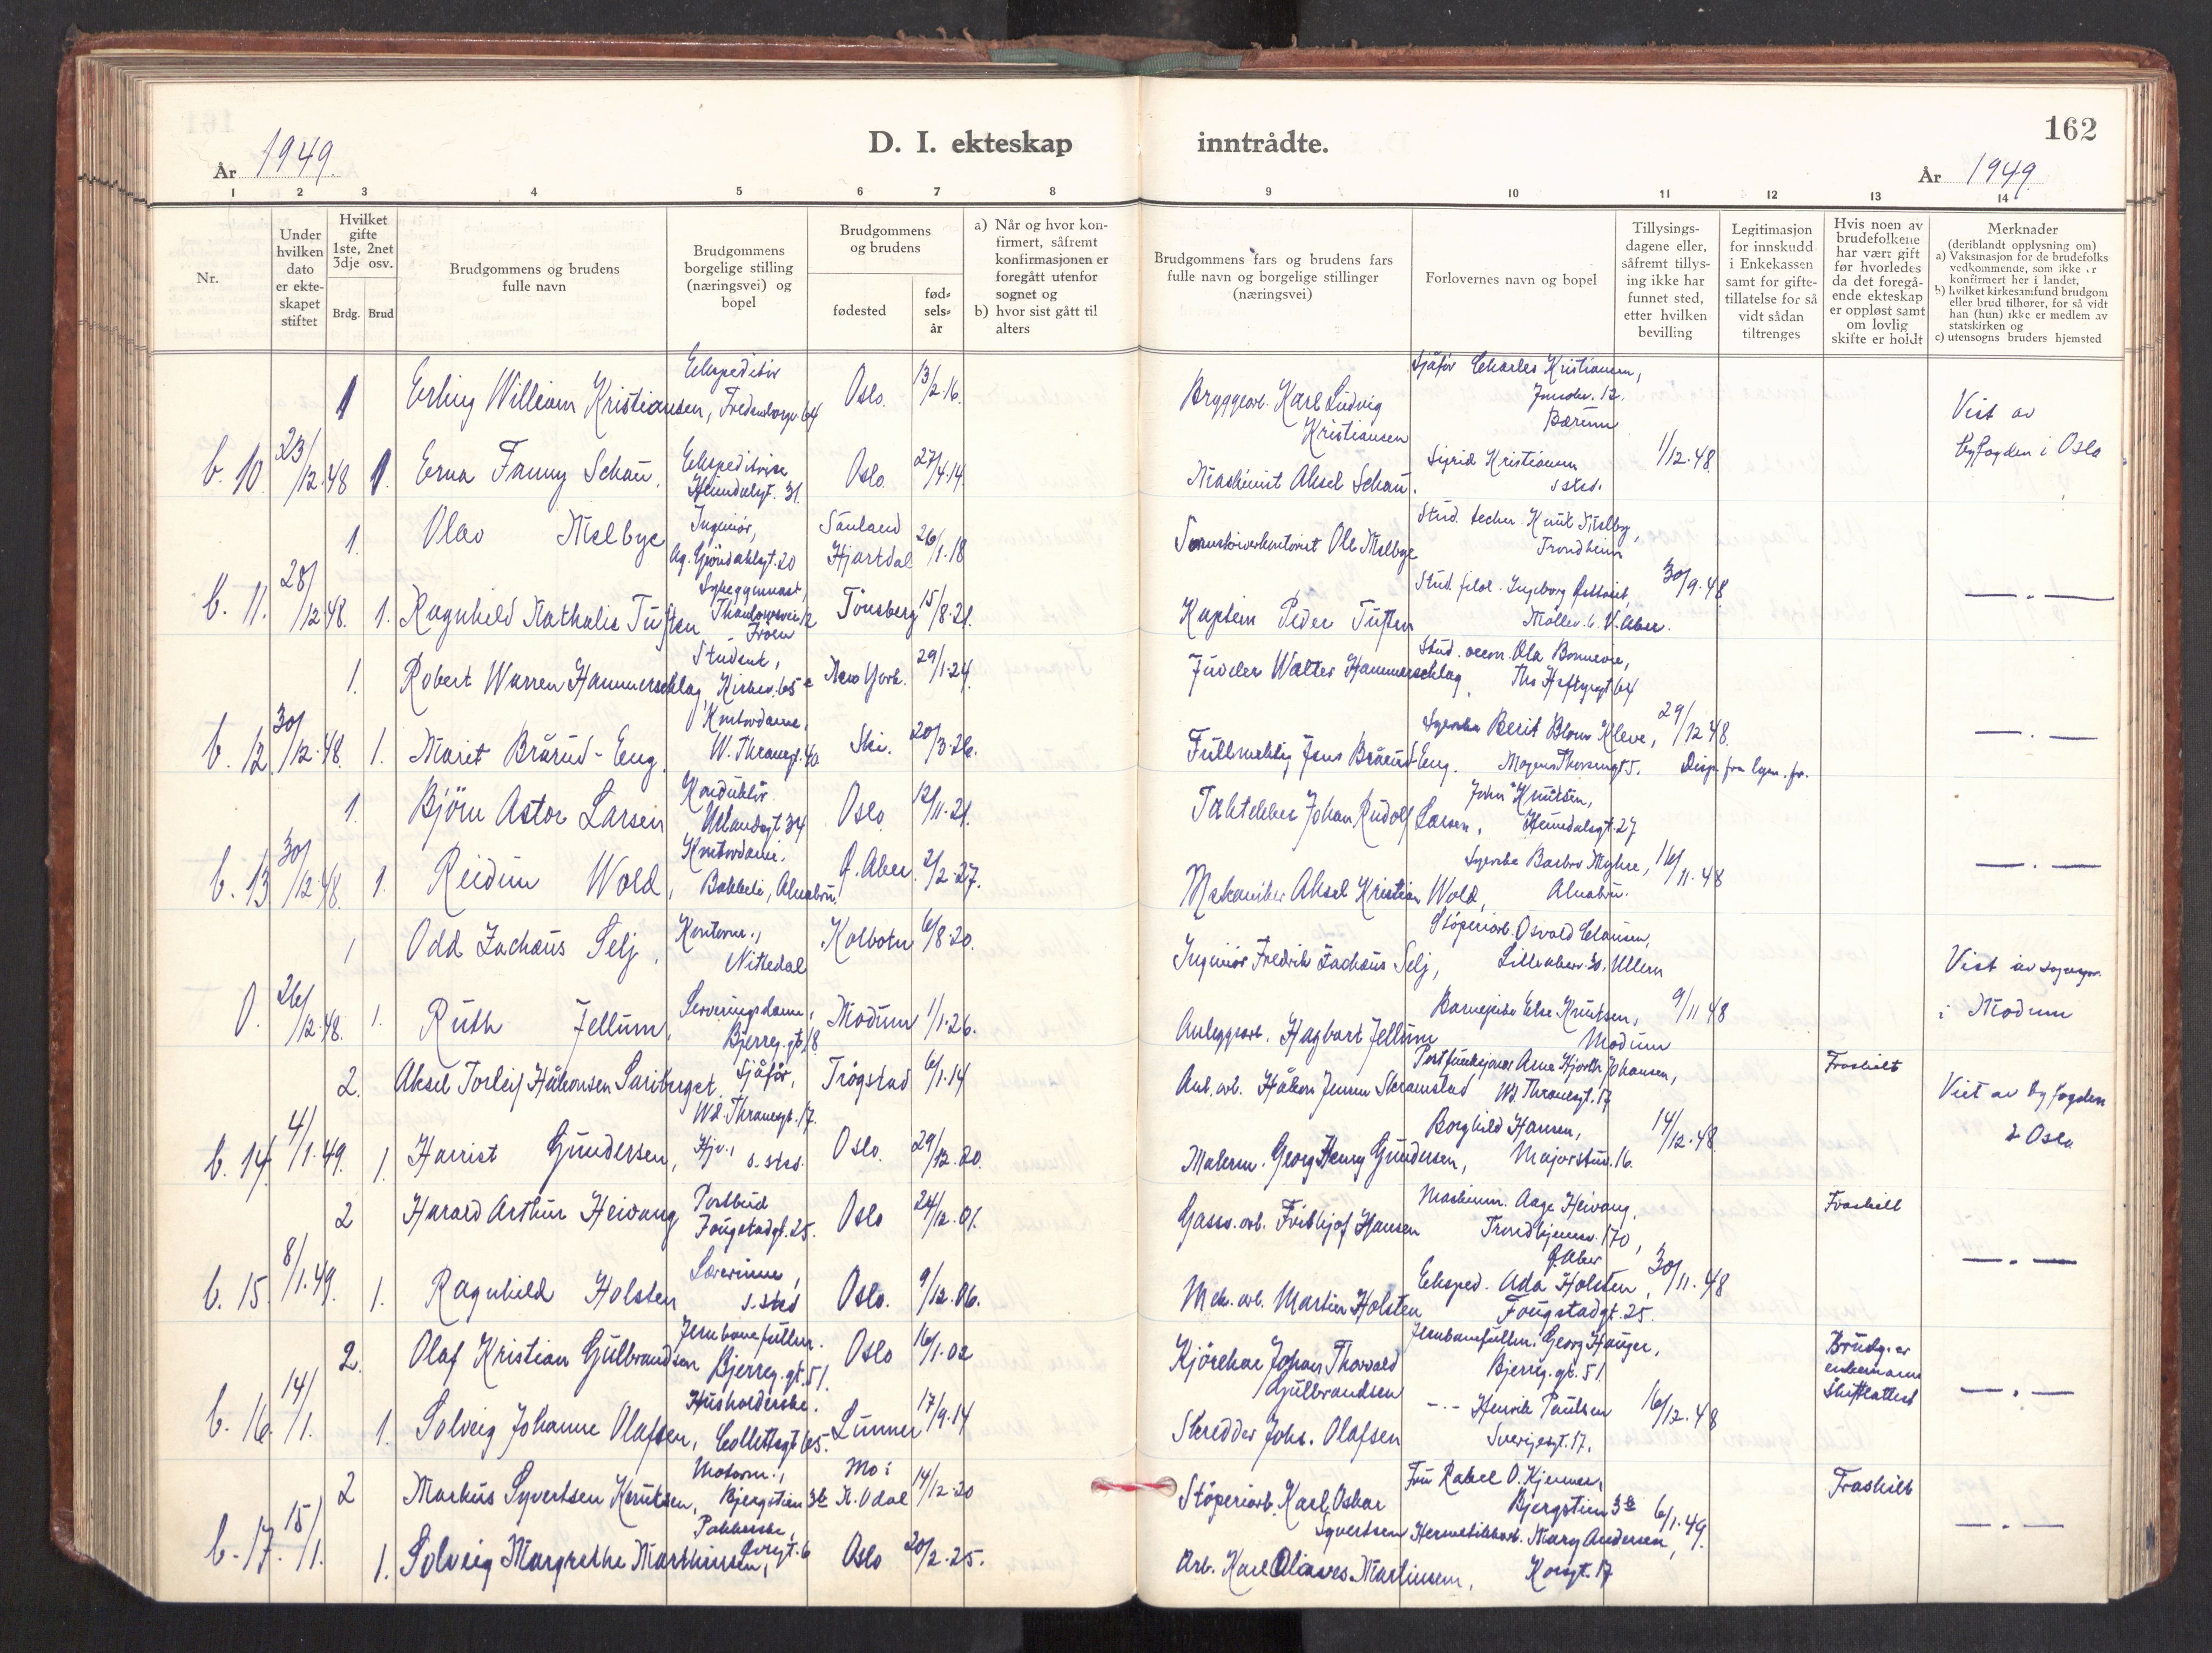 162
D. I. ekteskap inntrådte.
År 1949. År 1949
1 2 3 4 5 6 7 8 9 10 11 12 13 14
Nr.
Under hvilken dato er ekte-skapet stiftet
Hvilket gifte 1ste, 2net 3dje osv.
Brdg. Brud
Brudgommens og brudens fulle navn
Brudgommens borgelige stilling (næringsvei) og bopel
Brudgommens og brudens
fødested
fød-sels-år
a) Når og hvor kon-firmert, såfremt konfirmasjonen er foregått utenfor sognet og
b) hvor sist gått til alters
Brudgommens fars og brudens fars fulle navn og borgelige stillinger (næringsvei)
Forlovernes navn og bopel
Tillysings-dagene eller, såfremt tillys-ing ikke har funnet sted, etter hvilken bevilling
Legitimasjon for innskudd i Enkekassen samt for gifte-tillatelse for så vidt sådan tiltrenges
Hvis noen av brudefolkene har vært gift før hvorledes da det foregå-ende ekteskap er oppløst samt om lovlig skifte er holdt
Merknader
(deriblandt opplysning om)
a) Vaksinasjon for de brudefolks vedkommende, som ikke er konfirmert her i landet,
b) hvilket kirkesamfund brudgom eller brud tilhører, for så vidt han (hun) ikke er medlem av statskirken og
c) utensogns bruders hjemsted
1 Erling William Kristiansen, Ekspeditør Fredensborgv. 64 Oslo. 13/2.16. Bryggearb. Karl Ludvig Kristiansen Sjåfør Charles Kristiansen, Bærum Viet av byfogden i Oslo
b. 10 23/12.48 1. Erna Fanny Schau, Ekspeditrise Heimdalsgt. 31 Oslo 27/4.14 Maskinist Aksel Schau. Sigrid Kristiansen s sted. 1/12.48
1. Olav Melbye Ingeniør, Ag. Gröndahlsgt. 20 Sauland Hjartdal 26/1.18 Ole Melbye Stud. techn. Knut Melbye, Trondheim
b. 11. 28/12.48. 1. Ragnhild Nathalie Tuften Sykegymnast, Thaulowsvei 12 Tönsberg 15/8.21. Kaptein Peder Tuften Stud. filol. Ingeborg V. Aker. 30/9.48 — . —
1. Robert Warren Hammerschlag, Student, Kirkev. 65 c New York. 29/1.24. Juveler Walter Hammerschlag Stud. oecon. Ola Bonnevie, Ths Heftyesgt 64
b. 12. 30/12.48. 1. Marit Brårud-Eng. Kontordame, W. Thranesgt. 40 Ski. 20/3.26. Fullmektig Jens Brårud-Eng. Berit Blom Kleve, Mogens Thorsensgt 5. 29/12 48. Disp. fra — . —
1. Björn Astor Larsen Konduktør Urlandsgt 34 Oslo 12/11.21. Taktekker Johan Rudolf Larsen, John Knutsen, Heimdalsgt. 27
b. 13 30/12.48. 1. Reidun Wold, Kontordame. Bakkeli, Alnabru. Ø. Aker. 2/2.27. Mekaniker Aksel Kristian Wold, Barbro Myhre, Alnabru. 16/11.48 — . —
1 Odd Zachæus Selj, Kontorm., Nittedal Kolbotn 6/8.20. Ingeniör Fredrik Zachæus Selj, Støperiarb. Osvald Clausen, Lillakerv. 30. Ullern Viet av sogneprs.
0. 26/12.48. 1. Ruth Jellum, Serveringsdame, Bjerreg. gt. 18 Modum 1/1.26. Anleggsarb. Hagbart Jellum Barnepike Else Knutsen, Modum 9/11 48 i Modum
2. Aksel Torleif Håkonsen Sariberget. Sjåför, Wd. Thranesgt. 17. Trögstad 6/1.14 Anl. arb. Håkon Jensen Skramstad Postfunksjonær Arne Hjorth Johansen, Wd. Thranesgt. 17 Fraskilt Viet av byfogden
b. 14. 4/1.49. 1. Harriet Gundersen, Hjv., s. sted. Oslo. 29/12.20. Malerm. Georg Henry Gundersen, Borghild Hansen, Majorstuv. 16. 14/12.48. i Oslo
2 Harald Arthur Heivang Postbud Fougstadgt. 25. Oslo 24/12.01. Gassv. arb. Frithjof Hansen Maskinm. Aage Heivang, Trondhjemsv. 170, Ø. Aker Fraskilt
b. 15. 8/1.49. 1. Ragnhild Holsten Lærerinne, s. sted Oslo. 9/12.06. Mek. arb. Martin Holsten Eksped. Ada Holsten, Fougstadgt. 25. 30/11.48 — . —
2. Olaf Kristian Gulbrandsen Jernbanefullm. Bjerreg. gt. 51. Oslo 16/1.02 Kjörekar Johan Thorvald Gulbrandsen Jernbanefullm. Georg Hauger, Bjerreg. gt. 51. Brudg. er enkemann Skifteattest
b. 16. 14/1. 1. Solveig Johanne Olafsen, Husholderske. Collettsgt 65. Lunner 17/9.14 Skredder Johs. Olafsen - - - Henrik Paulsen Sverigesgt. 17. 16/12.48 — . —
2 Markus Syvertsen Knutsen, Motorm., Bjergstien 3b Mo i N. Odal 14/12.20 Støperiarb. Karl Oskar Syvertsen Fru Rakel O. Kjennes, Bjergstien 3b Fraskilt
b. 17. 15/1. 1. Solveig Margrethe Marthinsen, Pakkerske, Oslo 20/2.25. Arb. Karl Oliaves Martinsen, Hermetikkarb. Mary Andersen, Korsgt. 17 6/1.49. — . —